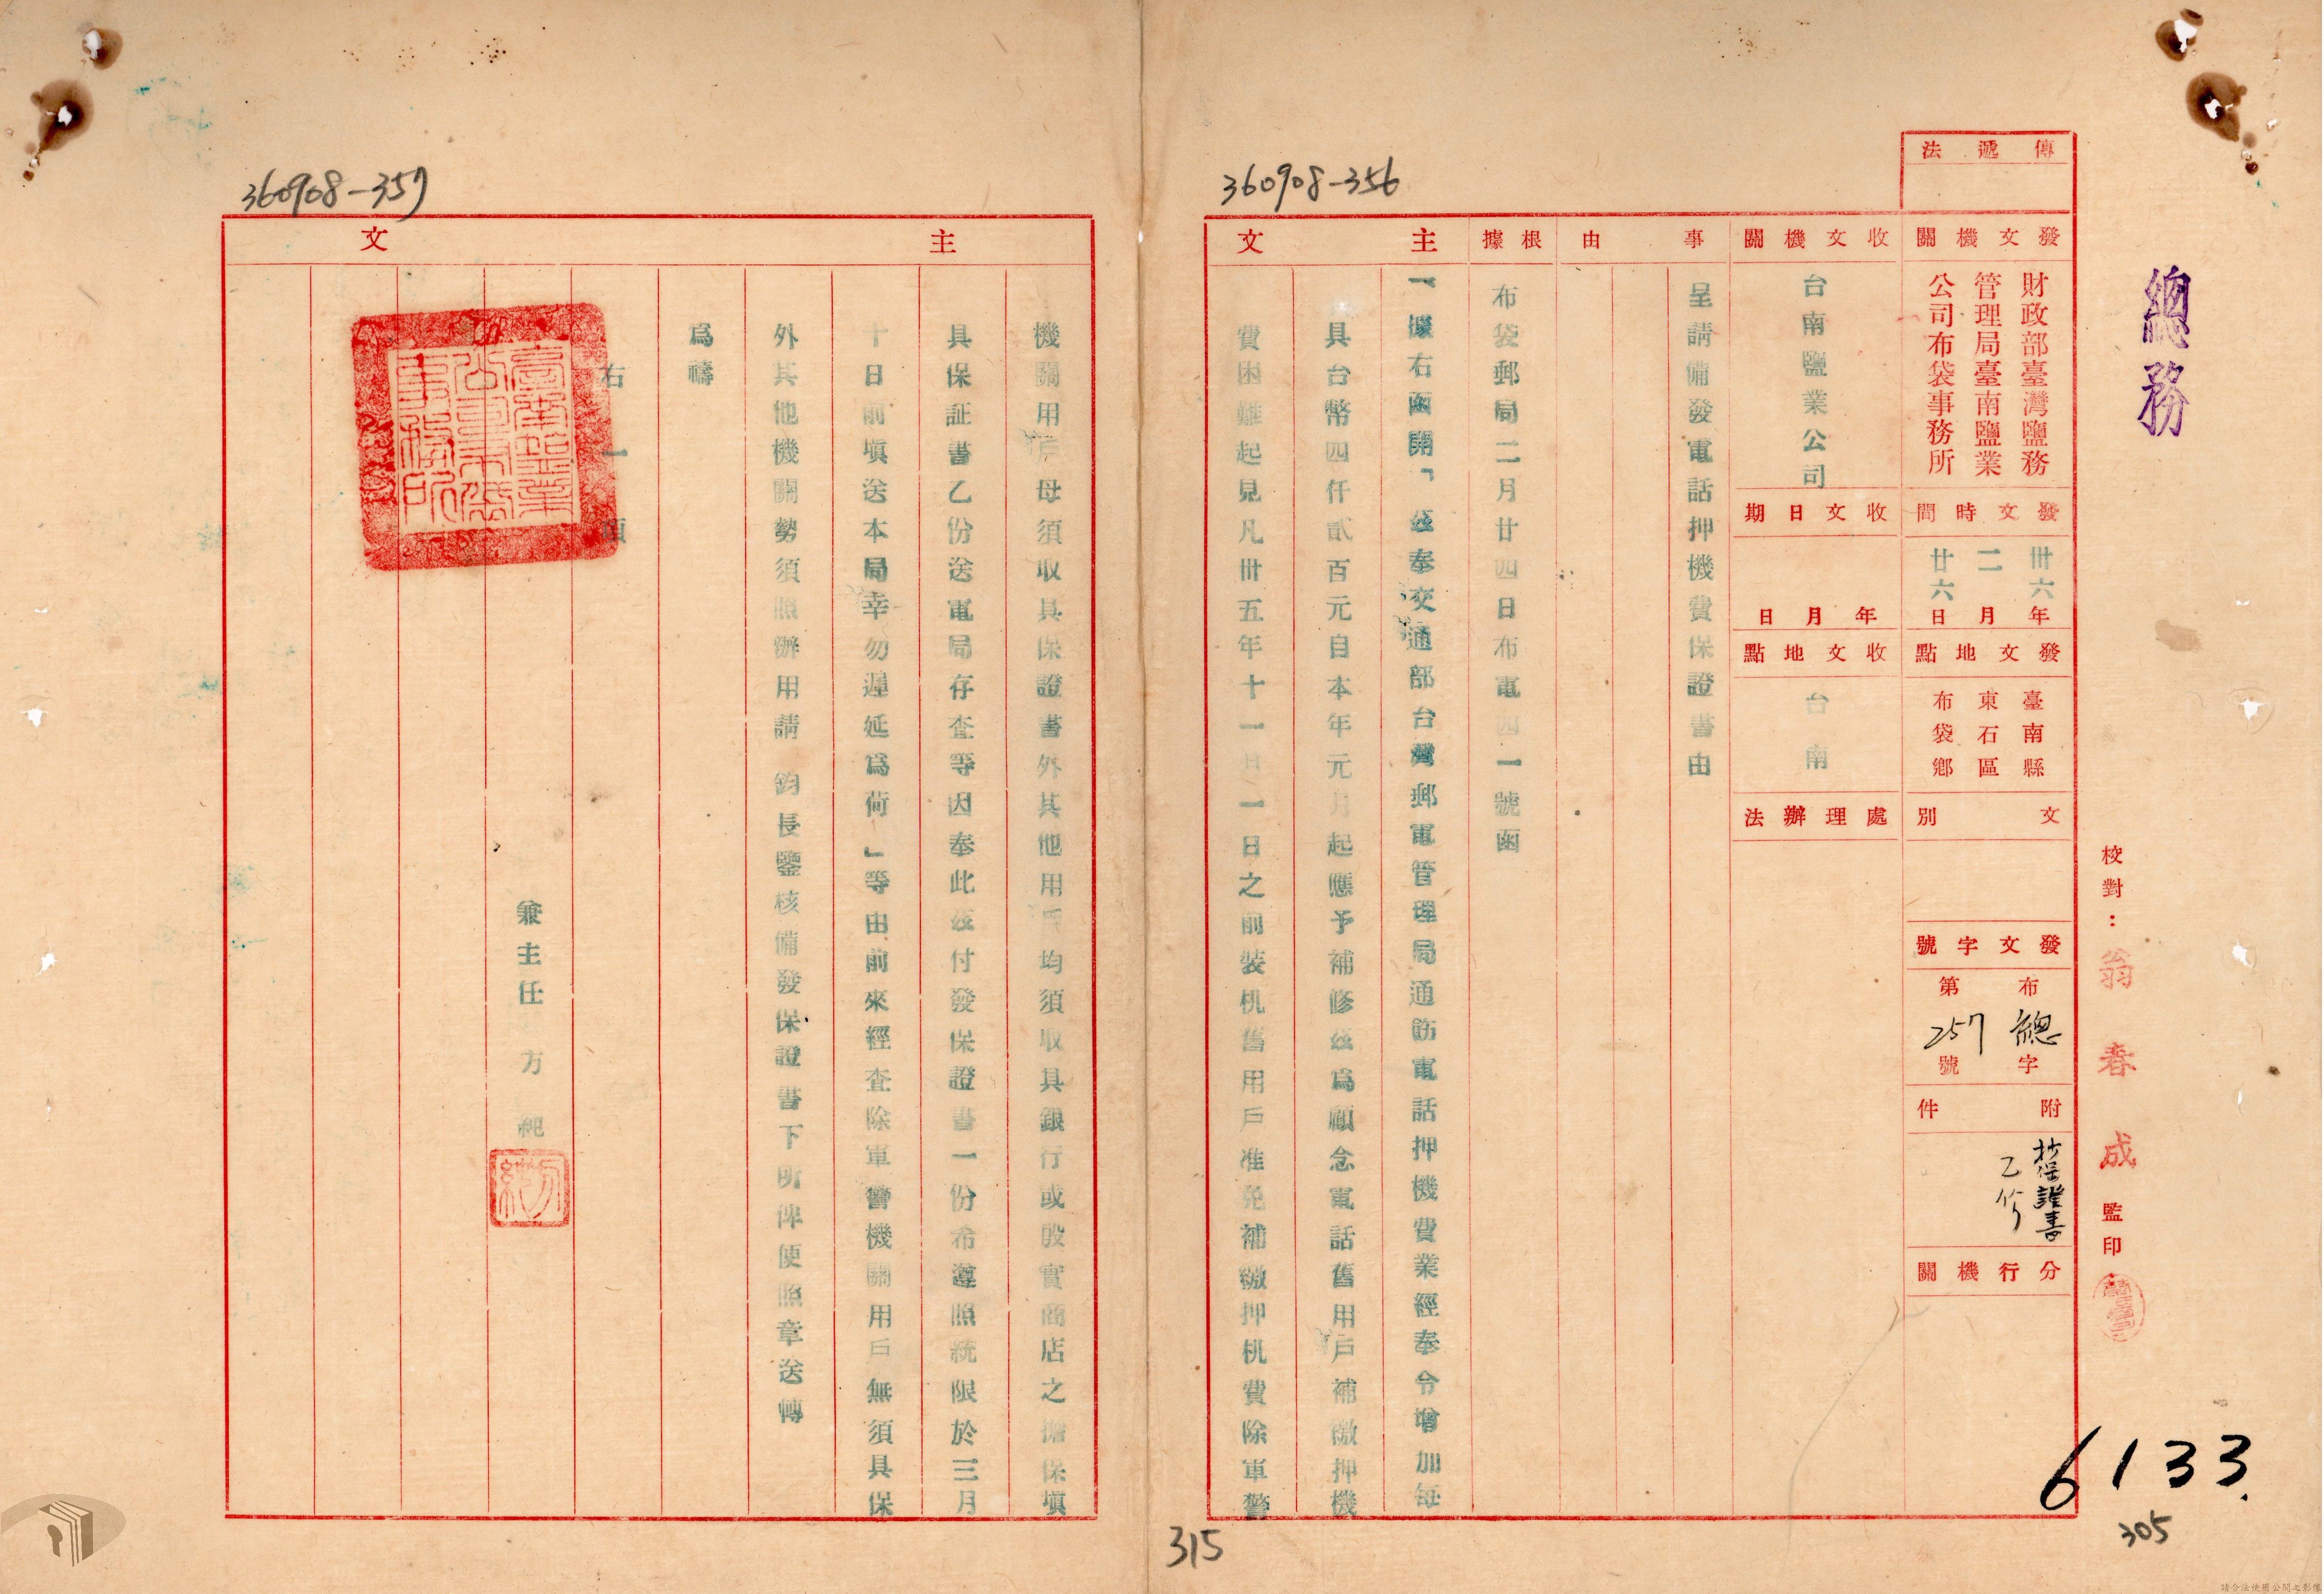 總務
傳遞法
發文機關
財政部臺灣鹽務
管理局臺南鹽業
公司布袋事務所
發文時間
卅六年
二月
廿六日
發文地點
臺南縣
東石區
布袋鄉
文別
發文字號
布總字
第257號
附件
抄保證書
乙份
分行機關
收文機關
台南鹽業公司
收文日期
年月日
收文地點
台南
處理辦法
事由
呈請備發電話押機費保證書由
根據
布袋郵局二月廿四日布電四一號函
主文
一據右函開「玆奉交通部台灣郵電管理局通飭電話押機費業經奉令增加每
具台幣四仟貳百元自本年元月起應予補修玆為顧念電話舊用戶補繳押機
費困難起見凡卅五年十一月一日之前裝机舊用戶准免補繳押机費除軍警
校對：翁春成
監印
6133.
305
315
360908-356
360908-357
主文
機關用戶毋須取具保證書外其他用戶均須取具銀行或殷實商店之擔保填
具保証書乙份送電局存查等因奉此玆付發保證書一份布遵照統限於三月
十日前填送本局幸勿遲延為荷」等由前來經查除軍警機關用戶無須具保
外其他機關勢須照辦用請 鈞長鑒核備發保證書下所俾便照章送轉
為禱
右一項
臺南鹽業
公司布袋
事務所
兼主任 方純
請合法使用公開之影像